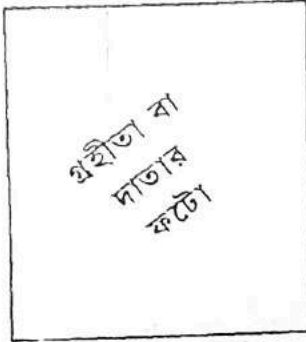 গ্রহীতা বা
দাতার
ফটো